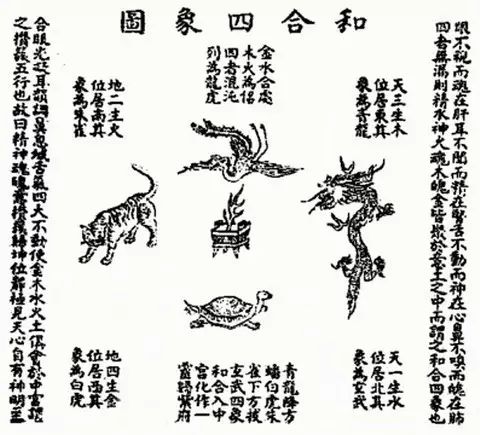 和合四象圖
眼不視而魂在肝耳不聞而精在腎舌不動而神在心鼻不嗅而魄在肺
四者無漏則精水神火魂木魄金皆聚於意土之中而謂之和合四象也
天三生木
位居東其
象為青龍
金水合處
木火為侶
四者混沌
列為龍虎
地二生火
位居南其
象為朱雀
天一生水
位居北其
象為玄武
青龍降方
蟠伯虎朱
雀下方
玄武四象
和合入中
宮化作一
靈歸紫府
地四生金
位居西其
象為白虎
合眼光凝耳韻調鼻息緘舌氣四大不動使金木水火土俱會於中宮謂
之攢簇五行也故曰精神魂魄意攢簇歸坤位靜極見天心自有神明至